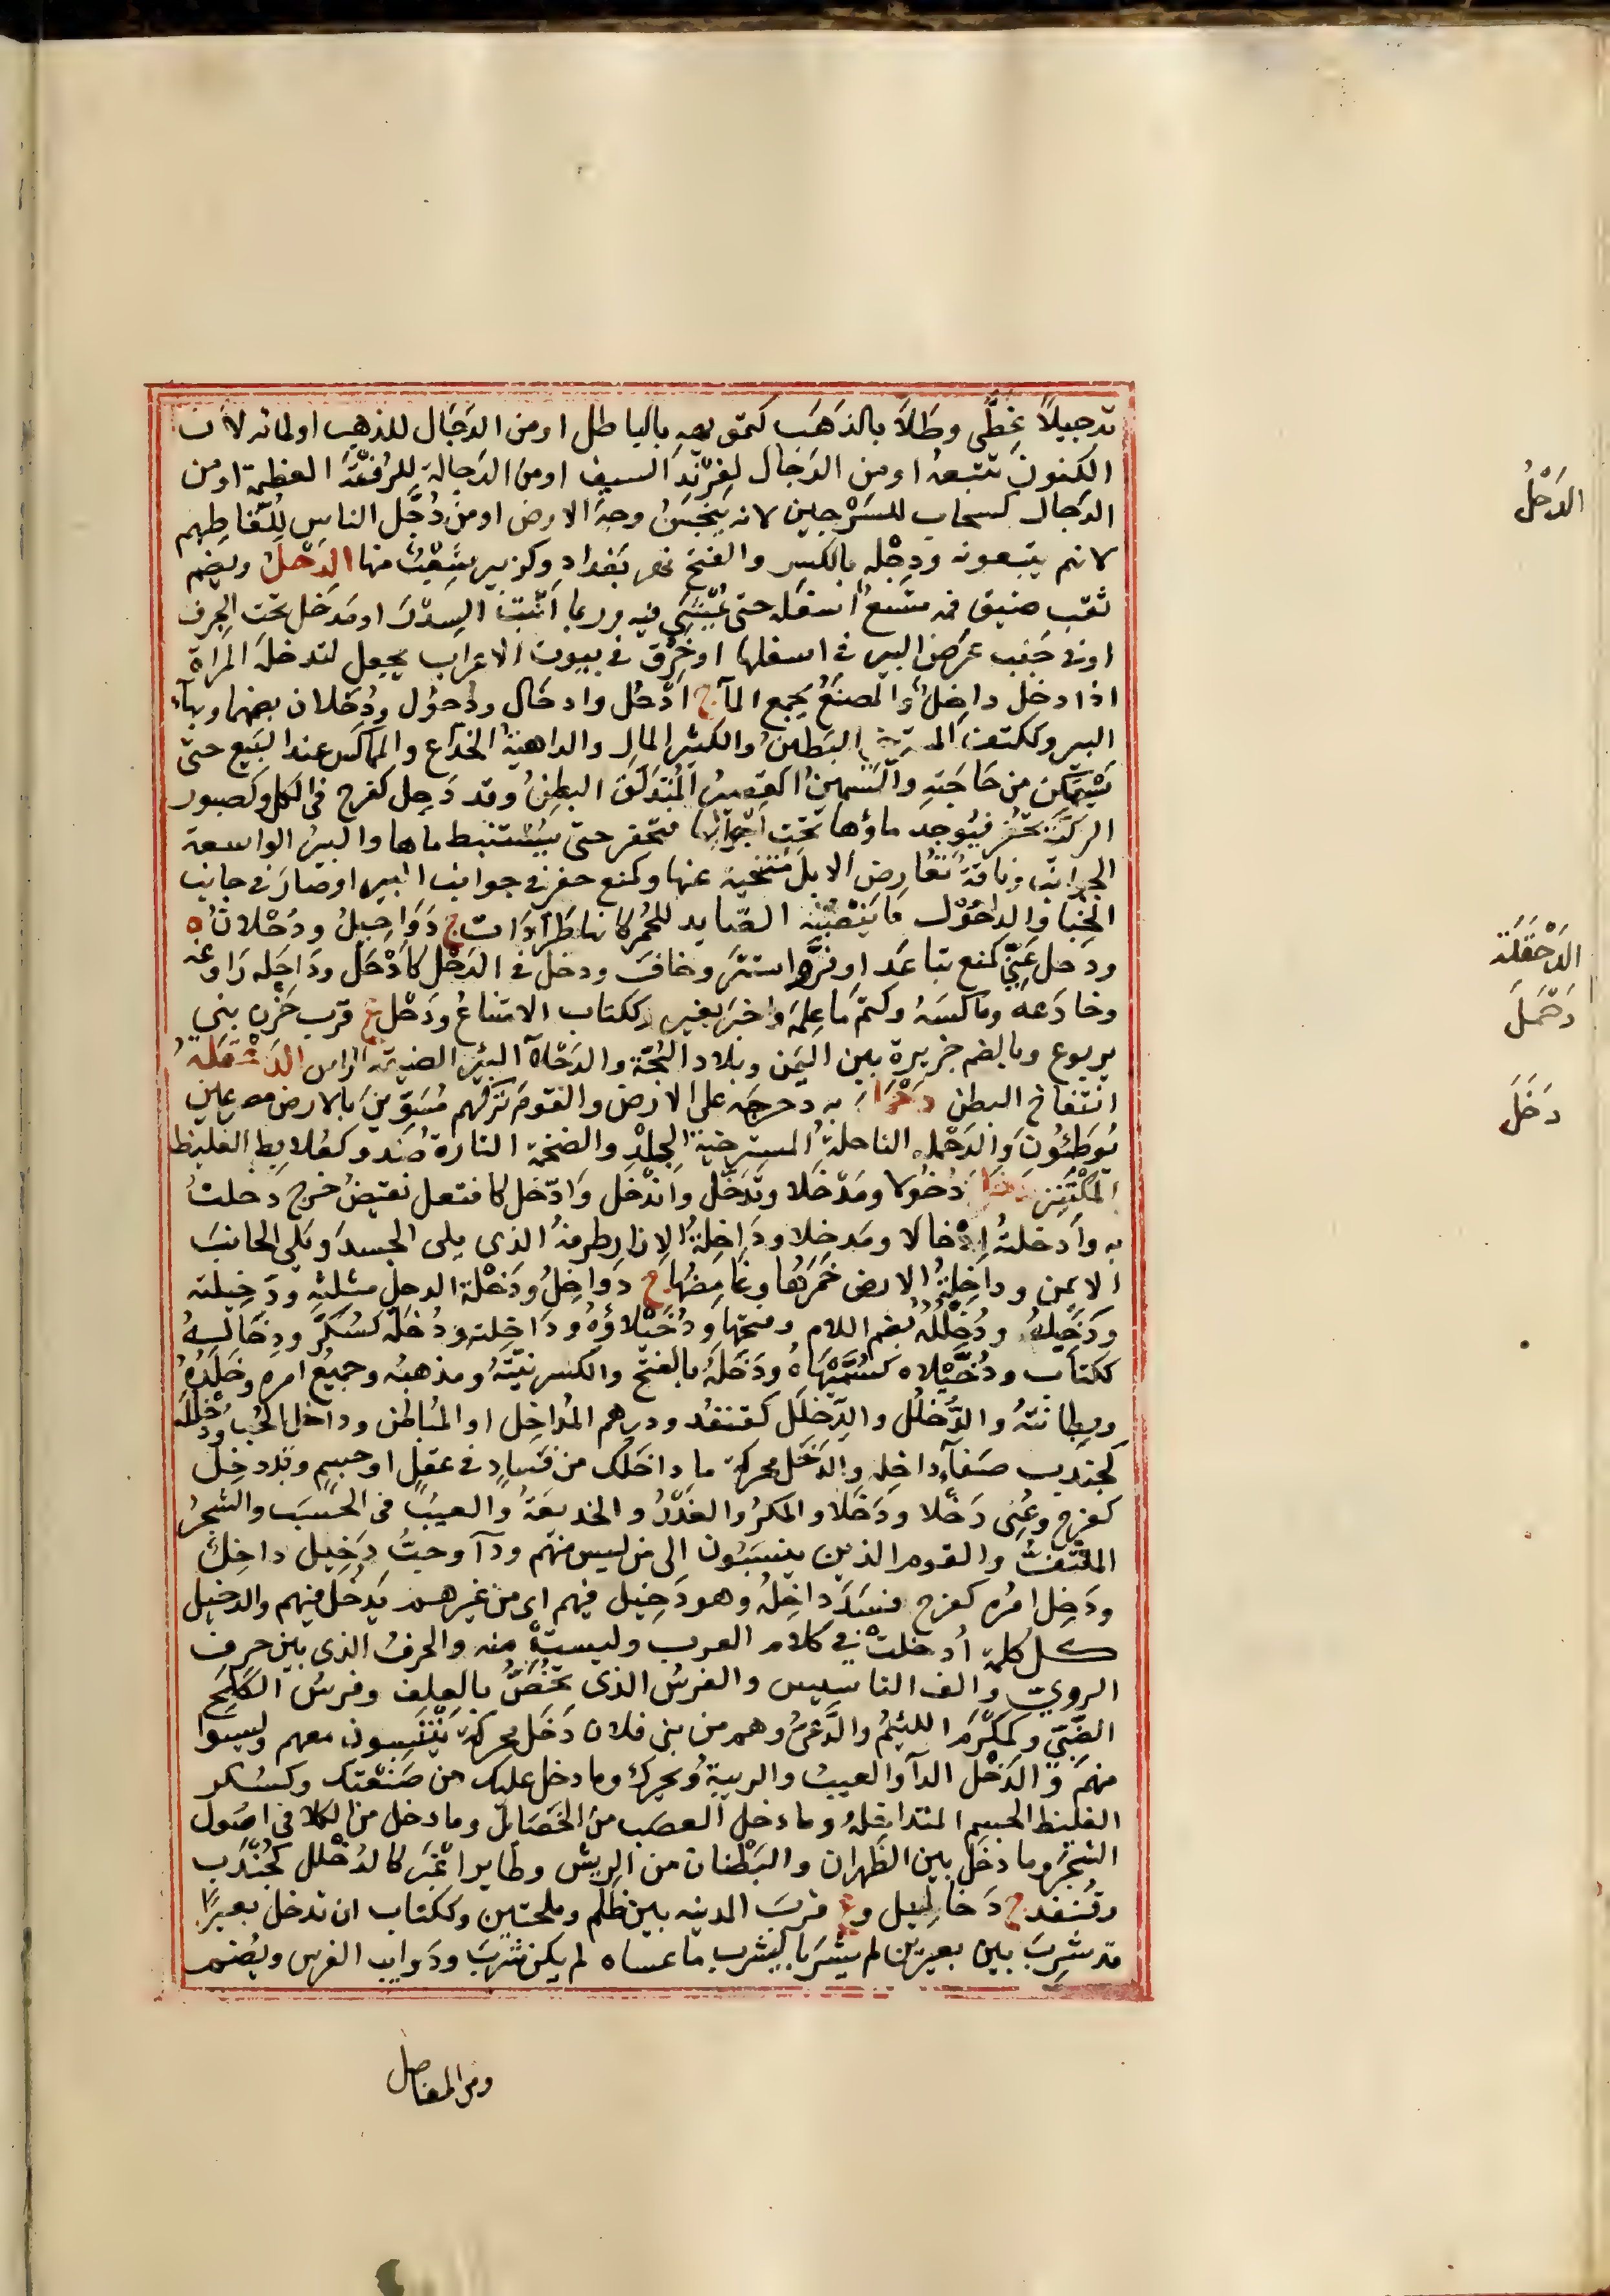 تدجيلاً غطّى وطَلاَ بالذهَب كتمويهه بالباطل اومن الدَجَال للذهب اولمائه لاَن
الكنوز تتبعهُ اومن الدَجَال لفِرنْدِ السيف اومن الدَجالة للرُفقَة العظيمة اومن
الدَجال كسحاب للسَرْجين لانه ينجّسُ وجهَ الارض اومن دُجَّل الناس للُقّاطهم
لانهم يتبعونه ودِجْله بالكسر والفتح نهر بَغداد وكزبير شعْبٌ منها الدَحْلُ ويُضم
ثقب ضيق فمه متسعٌ اسفله حتى يُمْشَى فيه وربما اَنْبَتَ السِدْرَ اومَدخل تحت الجرف
اوفى جَنب عرض البير فى اسفلها اوخَرْق فى بيوت الاعراب يجعل لتدخله المراة
اذا دخل داخِلٌ والمصنَعُ يجمع المآ ج اَدْحُل وادحَال ودُحُول ودُحْلان بضمهما وبهآء
البير وككتف المسترخى البَطينُ والكثير المال والداهيةُ الخدّاع والمماكس عند البَيع حتى
يَسْتَمكن من حَاجَتِه والسمينُ القصيرُ المُنْدَلَقُ البطنِ وقد دَحِل كفرح فى الكل وكصبور
الركيّة تحفَر فيُوجد ماؤها تحت اجوالها فتحفر حتى يُسْتنبط ماها والبيرُ الواسعة
الجوانب وناقةٌ تُعَارِض الابلَ متنحيةً عنها وكمنع حفر فى جوانب البير اوصَارَ فى جانب
الخبا والداحُول مَا يَنْصِبُه الصّايد للحُمر كانها طَرّادَات ج دَوَاحِيلُ ودُحْلانٌ ه
ودحل عَنّى كمنع تباعَد اوفرّ واستتر وخافَ ودخل فى الدَحْل كاَدْحَل ودَاحَله رَاوغه
وخادَعه وماكسَهُ وكتمَ مَا عِلمَه واخبَر بغيره وككتاب الامتناعُ ودَحْل ع قرب حَزْن بنى
يربوع وبالضم جزيرة بين اليمن وبلاد البُجَة والدَحْلآ البئر الضيقة الراس الدَحْقَلة
انتفاخ البطن دَحْمَل به دحرجَه على الارض والقومَ تركهم مُسَوّينَ بالارض مصرعين
يُوطَئُونَ والدَحْمله الناحلةُ المسترخيةُ الجلد والضخمة التارة ضد وكعُلابط الغليظ
المكْتنز دخل دُخُولا ومَدْخلا وتَدَخّل وانْدَخَل وَادّخل كافتعل نقيضُ خرج دخلتُ
به وادخلتهُ اِدْخالا ومُدخلا ودَاخِلةُ الازار طرفهُ الذى يلى الجسدَ ويَلى الجانبَ
الايمن وداخِلةُ الارض خَمَرُها وغامِضُها ج دَواخِلُ ودَخْلة الرجل مثلثه ودَخِيلته
ودَخِيلهُ ودُخْلُلُه بضم اللام وفتحها ودُخَيْلاؤُهُ ودَاخِلته ودُخَله كسُكَّر ودِخَاله
ككتاب ودُخَّيْلاه كسُمَّيْهاهُ ودَخلهُ بالفتح والكسر نِيّتُهُ ومذهبُه وجميعُ امرِه وخَلَدُهُ
وبِطانَتهُ والدُّخلُل والدُخْلَل كقنفذ ودرهم المُداخِل او المُباطن وداخل الحُب ودُخْلله
كجندب صَفآء داخِله والدَخَل محركة ما داخَلك من فَسَادٍ فى عقلٍ اوجسمٍ وقد دخِلَ
كفرح وعُنِى دَخَلا ودَخْلا والمكرُ والغَدْرُ والخديعَةُ والعيبُ فى الحَسَبَ والشجرُ
الملتفُّ والقوم الذين ينسبُون الى من ليس منهم ودآ وحبٌ دَخِيل داخِلٌ
ودَخِل امرُه كفرح فسَدَ داخِلهُ وهو دَخِيل فيهم اى من غيرهم يَدخُل فيهم والدخيل
كل كلمة اُدخلتْ فى كلام العرب وليستْ منه والحرفُ الذى بين حرف
الروِىّ والف التاسيس والفرسُ الذى يَخُصُّ بالعلف وفرسُ الكلَج
الضَبّىّ وكمكرم اللئيمُ والدَّعىُّ وهم من بنى فلان دَخَل محركة يَنتسبون معهم وليسوا
منهم والدَخْل الدآ والعيبُ والريبةُ ويحرك وما دخل عليك من ضَيْعتك وكسُكر
الغليظ الجسم المتداخلهُ وما دخل العصَب من الخَصَايل وما دخل من الكلا فى اصُول
الشجر وما دخل بين الظُهران والبُطْنان من الريش وطَاير اغْبَر كالدُخْلل كجُنْدَب
وقُنفذ ج دَخاليل وع قربَ المدينه بين ظَلِم وملحتين وككتاب ان تدخل بعيرًا
قد شرِبَ بين بعيرين لم يَشرَبا ليشرب ما عساه لم يكن شرِبَ وذَوايب الفرس ويُضم
ومن المفاصل
الدَحْلُ
الدَحْقَلة
دَحْمَلَ
دَخَلَ